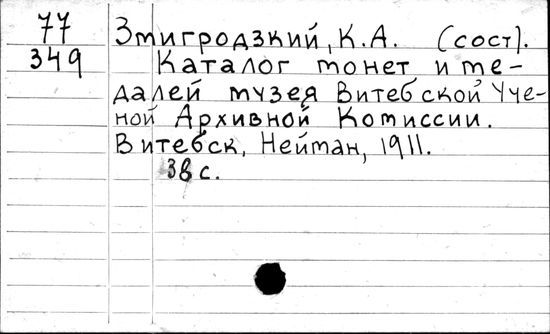 77 Змигродзкий, К.А. (сост).
349 Каталог монет и ме-
далей музея Витебской Уче-
ной Архивной Комиссии.
Витебск, Нейман, 1911.
38 с.